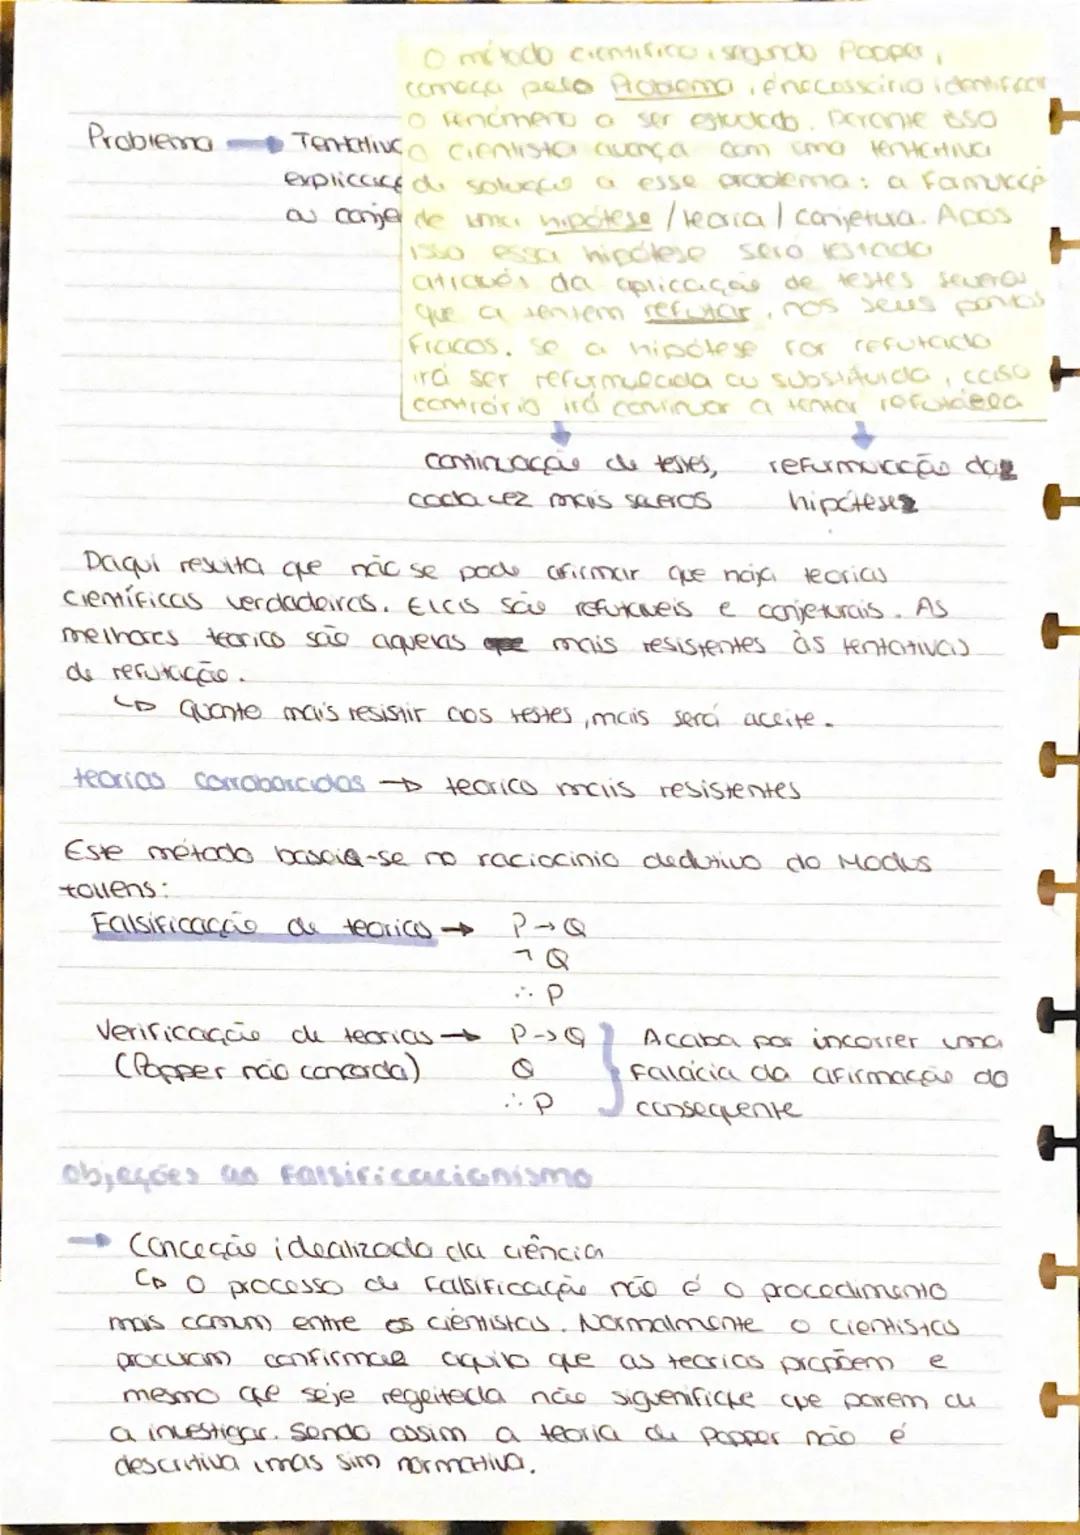 O método cientifico, segundo Popper,
começa pelo Problema, é necessário identificar
o fenómeno a ser estudado. Perante isso
o cientista avança com uma tentativa
de solução a esse problema: a formulação
de uma hipótese / teoria / conjetura. Após
isso essa hipótese será testada
através da aplicação de testes severos
que a tentem refutar, nos seus pontos
fracos. Se a hipótese for refutada
irá ser reformulada ou substituida, caso
contrário irá continuar a tentar refutá-la
Problema → Tentativa
explicaç
ou conje
continuação de testes,
cada vez mais severos
reformulação da
hipótese
Daqui resulta que não se pode afirmar que haja teorias
científicas verdadeiras. Elas são refutáveis e conjeturais. As
melhores teorias são aquelas mais resistentes às tentativas
de refutação.
↳ Quanto mais resistir aos testes, mais será aceite.
teorias corroboradas → teorias mais resistentes
Este método baseia-se no raciocinio dedutivo do Modus
tollens:
Falsificação de teorias → P → Q
¬ Q
∴ P
Verificação de teorias → P → Q
(Popper não concorda) Q
∴ P
Acaba por incorrer uma
falácia da afirmação do
consequente
objeções ao falsificacionismo
→ Conceção idealizada da ciência
↳ O processo de falsificação não é o procedimento
mais comum entre os cientistas. Normalmente o cientistas
procuram confirmar aquilo que as teorias propõem e
mesmo que seje regeitada não siguenifique que parem de
a investigar. Sendo assim a teoria de Popper não é
descritiva, mas sim normativa.